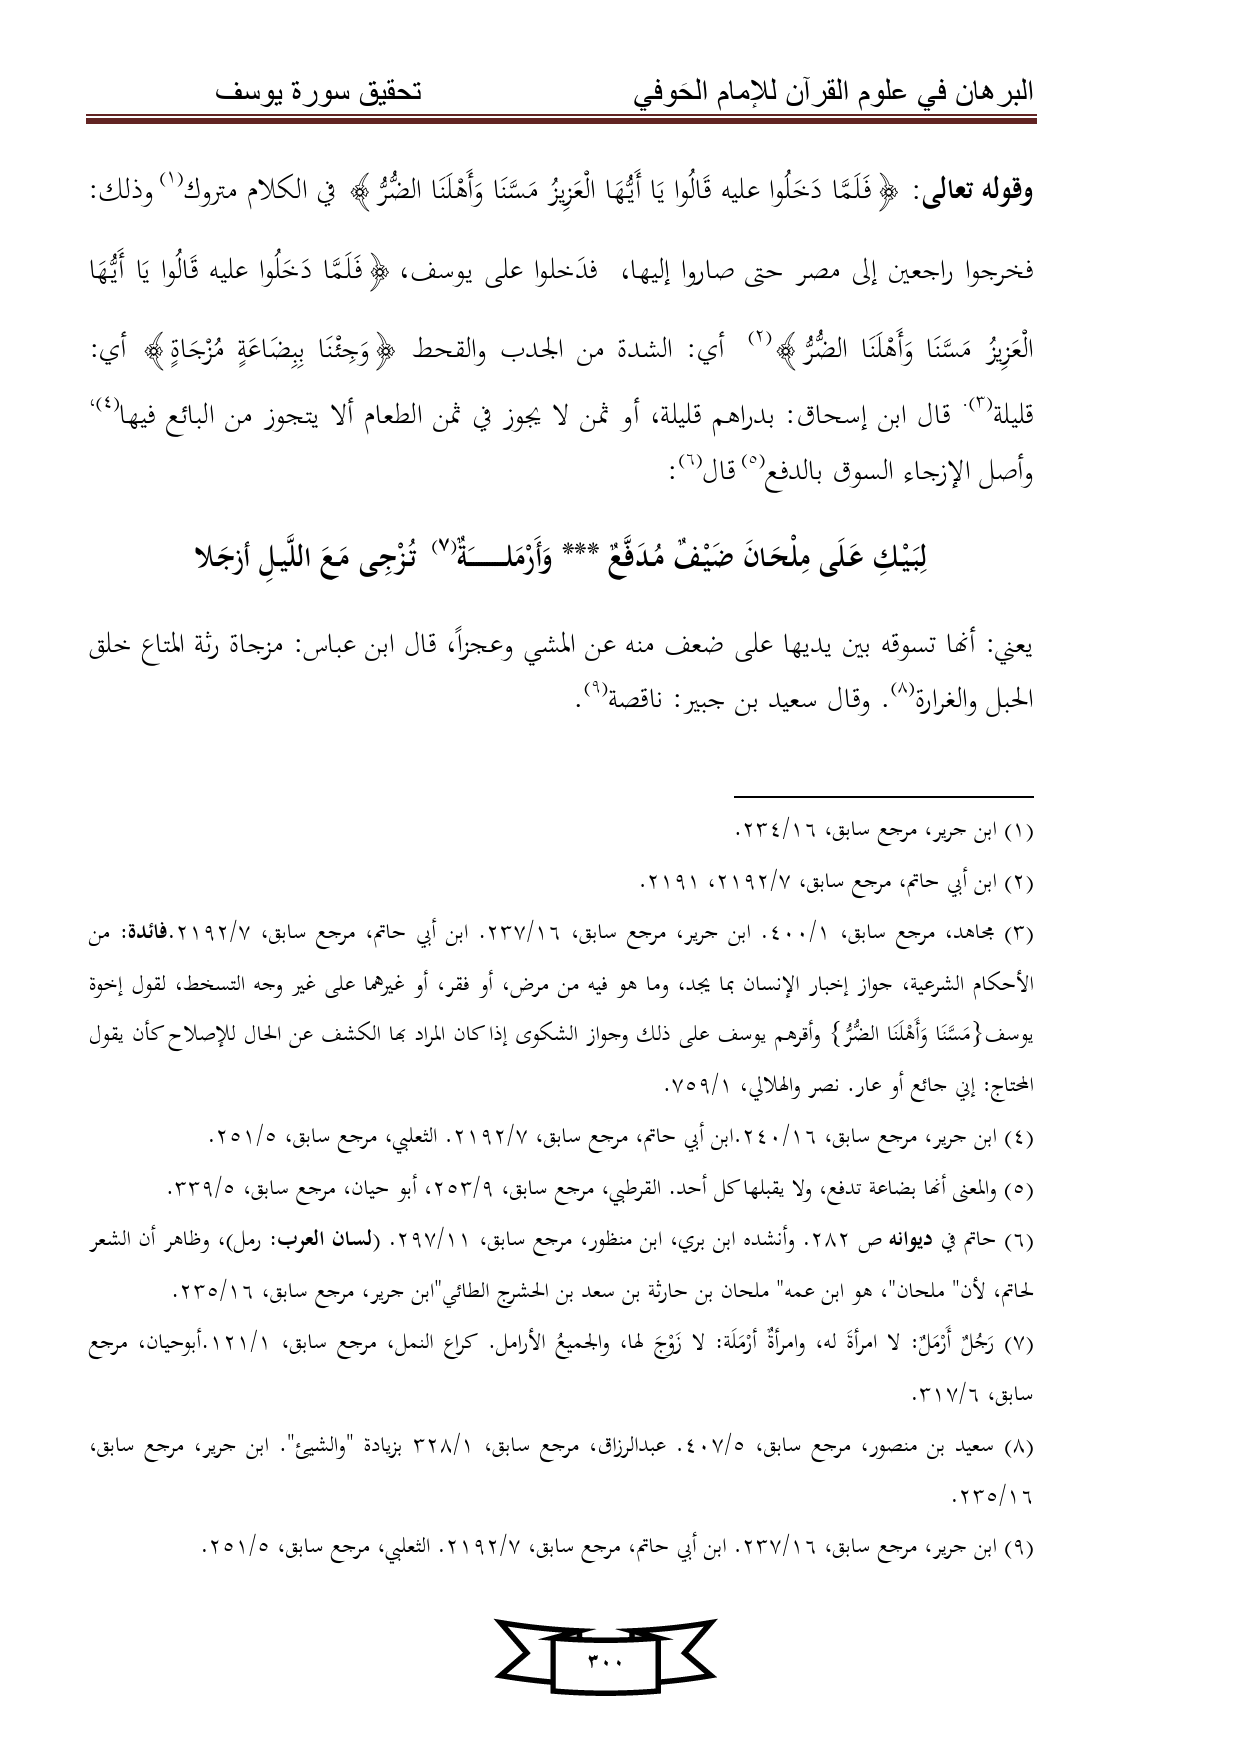 البرهان في علوم القرآن للإمام الحَوفي تحقيق سورة يوسف
وقوله تعالى: ﴿فَلَمَّا دَخَلُوا عليه قَالُوا يَا أَيُّهَا الْعَزِيزُ مَسَّنَا وَأَهْلَنَا الضُّرُّ﴾ في الكلام متروك(١) وذلك:
فخرجوا راجعين إلى مصر حتى صاروا إليها، فدَخلوا على يوسف، ﴿فَلَمَّا دَخَلُوا عليه قَالُوا يَا أَيُّهَا
الْعَزِيزُ مَسَّنَا وَأَهْلَنَا الضُّرُّ﴾(٢) أي: الشدة من الجدب والقحط ﴿وَجِئْنَا بِبِضَاعَةٍ مُزْجَاةٍ﴾ أي:
قليلة(٣). قال ابن إسحاق: بدراهم قليلة، أو ثمن لا يجوز في ثمن الطعام ألا يتجوز من البائع فيها(٤)،
وأصل الإزجاء السوق بالدفع(٥) قال(٦):
لِبَيْكِ عَلَى مِلْحَانَ ضَيْفٌ مُدَفَّعٌ *** وَأَرْمَلـــــةٌ(٧) تُزْجِى مَعَ اللَّيلِ أزجَلا
يعني: أنها تسوقه بين يديها على ضعف منه عن المشي وعجزاً، قال ابن عباس: مزجاة رثة المتاع خلق
الحبل والغرارة(٨). وقال سعيد بن جبير: ناقصة(٩).
(١) ابن جرير، مرجع سابق، ٢٣٤/١٦.
(٢) ابن أبي حاتم، مرجع سابق، ٢١٩٢/٧، ٢١٩١.
(٣) مجاهد، مرجع سابق، ٤٠٠/١. ابن جرير، مرجع سابق، ٢٣٧/١٦. ابن أبي حاتم، مرجع سابق، ٢١٩٢/٧.فائدة: من
الأحكام الشرعية، جواز إخبار الإنسان بما يجد، وما هو فيه من مرض، أو فقر، أو غيرهما على غير وجه التسخط، لقول إخوة
يوسف{مَسَّنَا وَأَهْلَنَا الضُّرُّ} وأقرهم يوسف على ذلك وجواز الشكوى إذا كان المراد بها الكشف عن الحال للإصلاح كأن يقول
المحتاج: إني جائع أو عار. نصر والهلالي، ٧٥٩/١.
(٤) ابن جرير، مرجع سابق، ٢٤٠/١٦.ابن أبي حاتم، مرجع سابق، ٢١٩٢/٧. الثعلبي، مرجع سابق، ٢٥١/٥.
(٥) والمعنى أنها بضاعة تدفع، ولا يقبلها كل أحد. القرطبي، مرجع سابق، ٢٥٣/٩، أبو حيان، مرجع سابق، ٣٣٩/٥.
(٦) حاتم في ديوانه ص ٢٨٢. وأنشده ابن بري، ابن منظور، مرجع سابق، ٢٩٧/١١. (لسان العرب: رمل)، وظاهر أن الشعر
لحاتم، لأن" ملحان"، هو ابن عمه" ملحان بن حارثة بن سعد بن الحشرج الطائي"ابن جرير، مرجع سابق، ٢٣٥/١٦.
(٧) رَجُلٌ أَرْمَلٌ: لا امرأةَ له، وامرأةٌ أرْمَلَة: لا زَوْجَ لها، والجميعُ الأرامل. كراع النمل، مرجع سابق، ١٢١/١.أبوحيان، مرجع
سابق، ٣١٧/٦.
(٨) سعيد بن منصور، مرجع سابق، ٤٠٧/٥. عبدالرزاق، مرجع سابق، ٣٢٨/١ بزيادة "والشيئ". ابن جرير، مرجع سابق،
٢٣٥/١٦.
(٩) ابن جرير، مرجع سابق، ٢٣٧/١٦. ابن أبي حاتم، مرجع سابق، ٢١٩٢/٧. الثعلبي، مرجع سابق، ٢٥١/٥.
٣٠٠